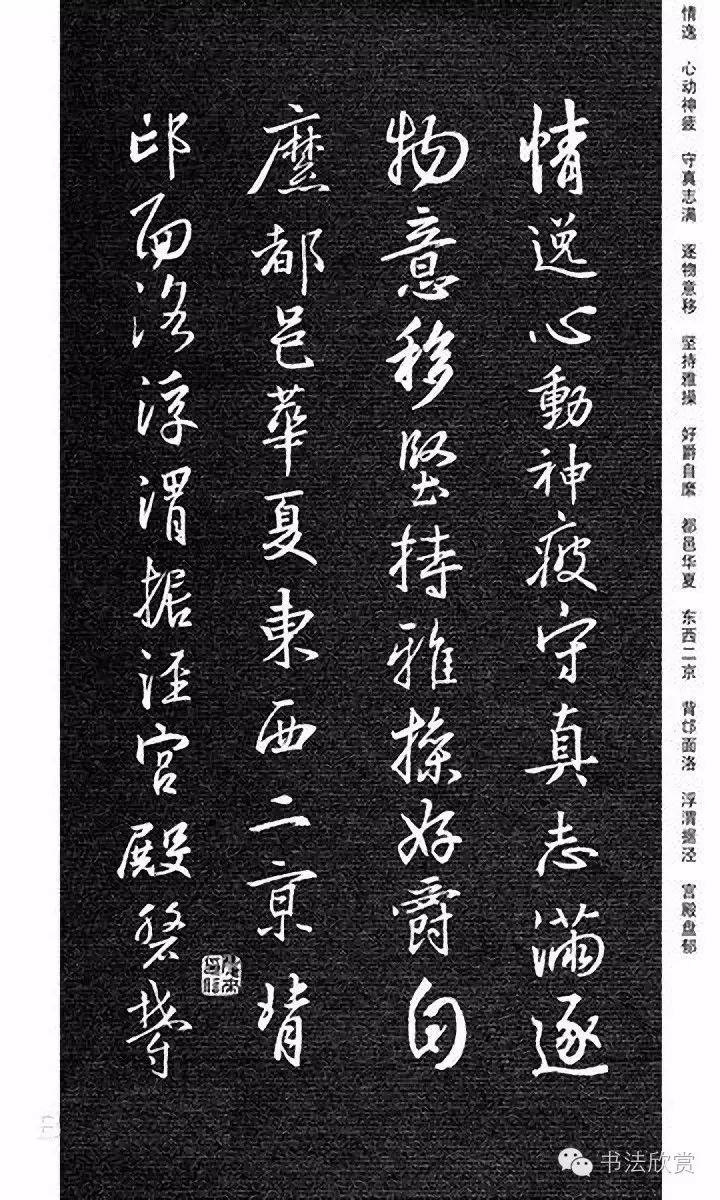 情逸 心动神疲 守真志满 逐物意移 坚持雅操 好爵自縻 都邑华夏 东西二京 背邙面洛 浮渭据泾 宫殿盘郁
情逸心動神疲守真志滿逐
物意移堅持雅操好爵自
縻都邑華夏東西二京背
邙面洛浮渭据涇宮殿磐欝
书法欣赏